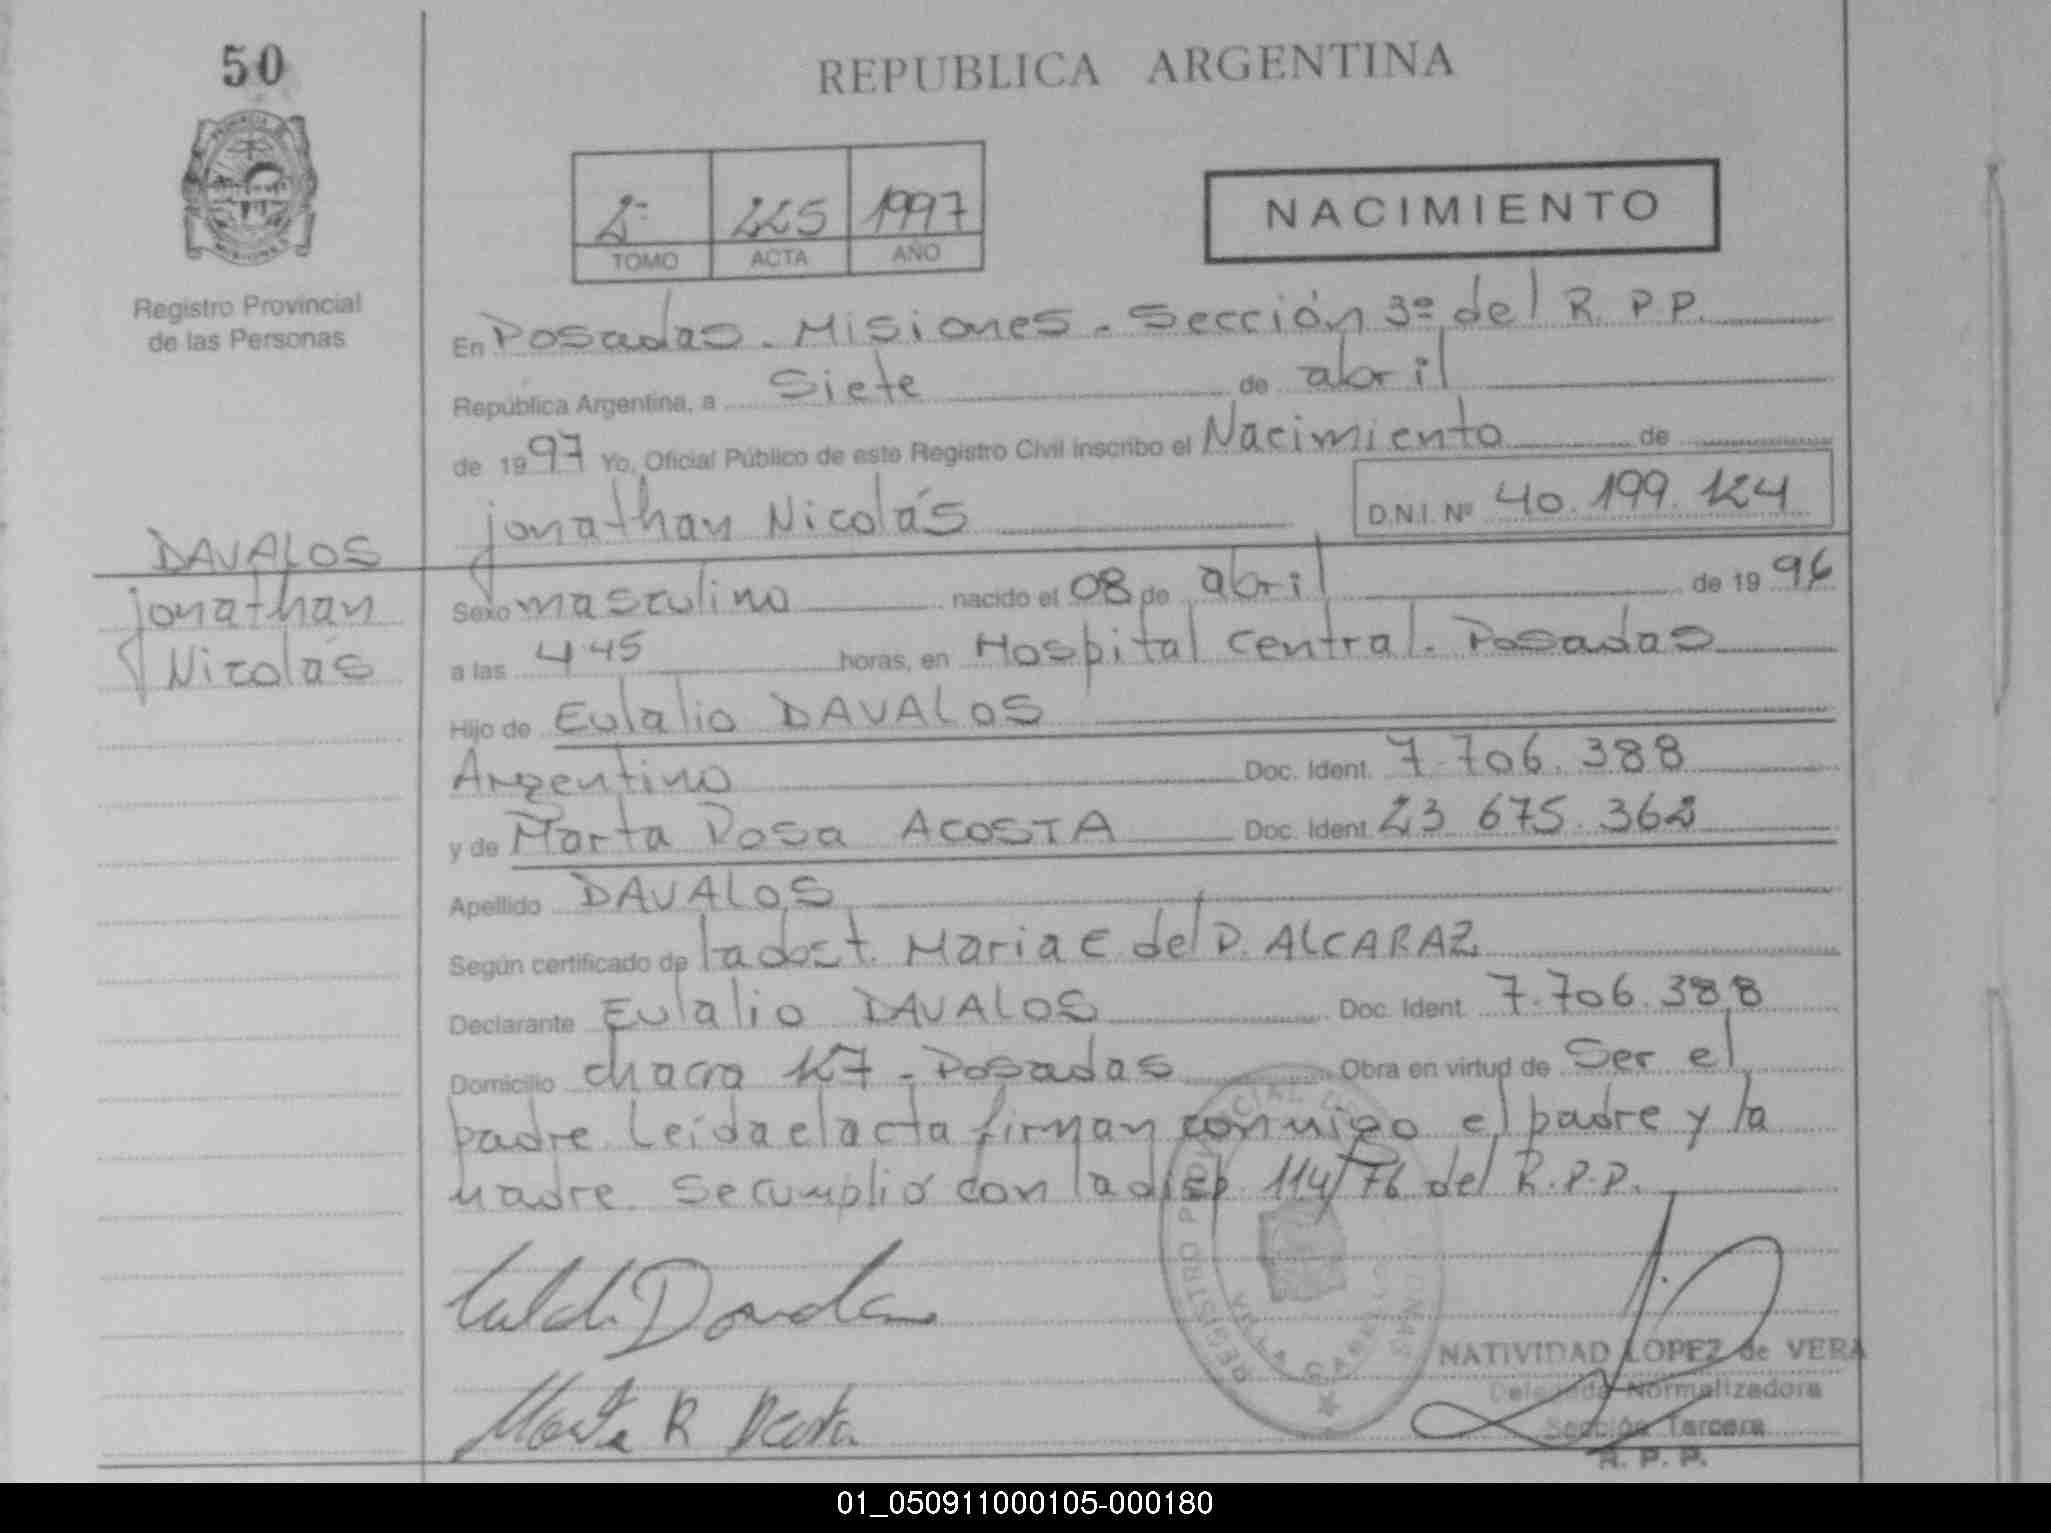 50
REPUBLICA ARGENTINA
2º 225 1997
TOMO ACTA AÑO
NACIMIENTO
Registro Provincial
de las Personas
En Posadas - Misiones - Sección 3º del R. P. P.
República Argentina, a siete de abril
de 1997 Yo, Oficial Público de este Registro Civil inscribo el Nacimiento de
jonathan Nicolás D.N.I. Nº 40.199.124
DAVALOS
jonathan
Nicolás
Sexo masculino nacido el 08 de abril de 1996
a las 4.45 horas, en Hospital Central. Posadas
Hijo de Eulalio DAVALOS
Argentino Doc. Ident. 7.706.388
y de Marta Rosa ACOSTA Doc. Ident. 23 675.362
Apellido DAVALOS
Según certificado de la dost. Maria E del P. ALCARAZ
Declarante Eulalio DAVALOS Doc. Ident. 7.706.388
Domicilio chacra 127 - Posadas Obra en virtud de ser el
padre. Leída el acta firman conmigo el padre y la
madre. Se cumplió con la disp. 114/76 del R.P.P.
REGISTRO PROVINCIAL
Marta R Acosta
NATIVIDAD LOPEZ de VERA
Delegada Normalizadora
Sección Tercera
R. P. P.
01_050911000105-000180